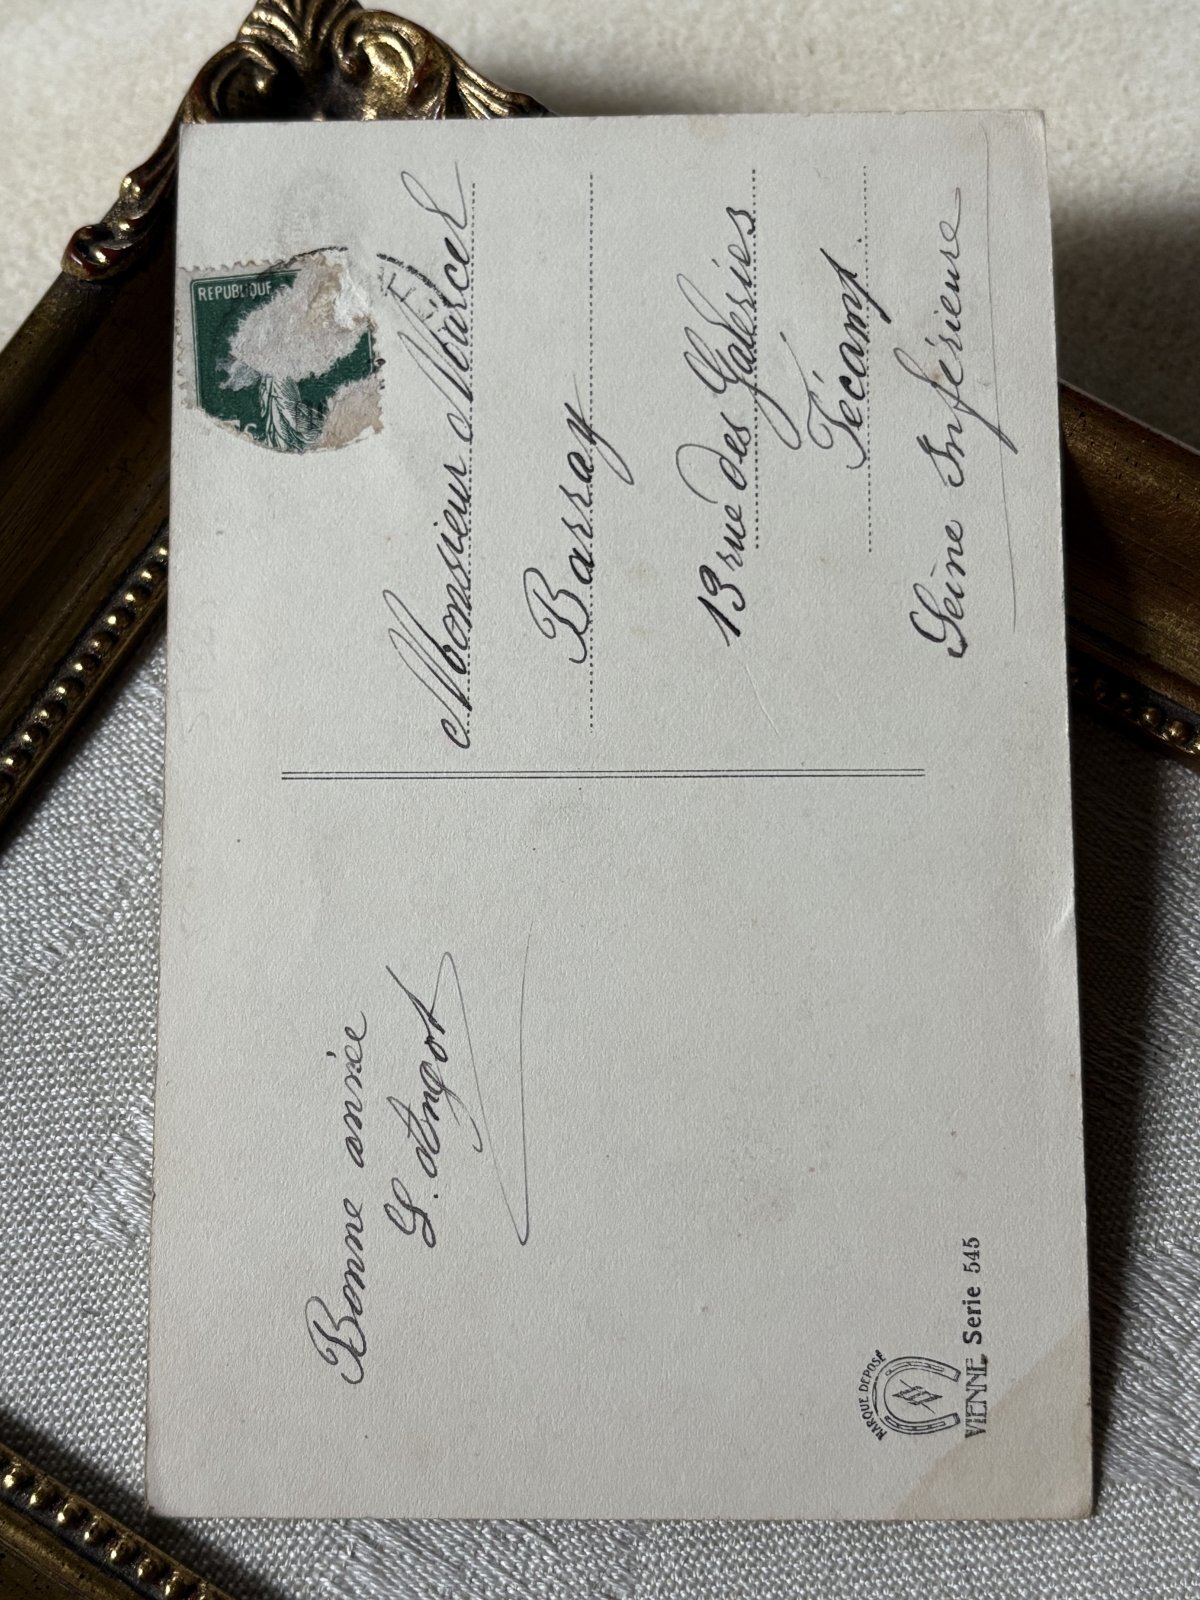 REPUBLIQUE
Bonne année
G. Angot
Monsieur Marcel
Barray
13 rue des Galeries
Fécamp.
Seine Inférieure
MARQUE DEPOSÉ
VIENNE Serie 545